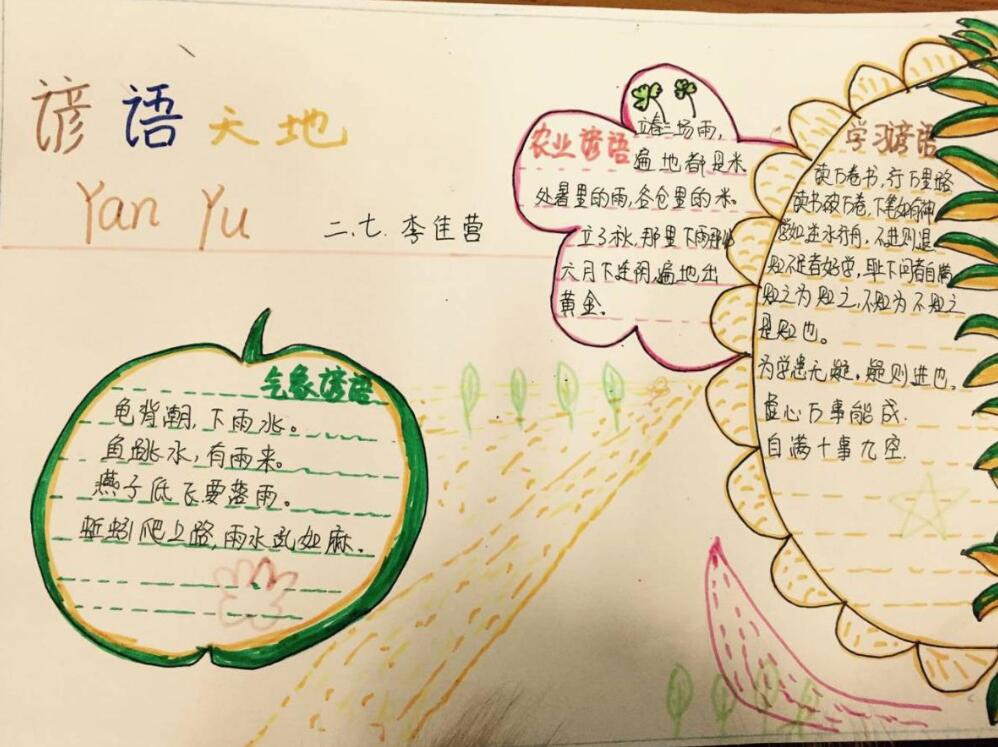 谚语天地
Yan Yu
二、七. 李佳营
农业谚语
立春三场雨,
遍地都是米
处暑里的雨,谷仓里的米。
立了秋,那里下雨那
六月下连阴,遍地出
黄金。
学习谚语
读万卷书,行万里路
读书破万卷,下笔如有神
学如逆水行舟,不进则退
知不足者好学,耻下问者自满
知之为知之,不知为不知之
是知也。
为学患无疑,疑则进也。
虚心万事能成.
自满十事九空.
气象谚语
龟背潮,下雨水。
鱼跳水,有雨来。
燕子低飞要落雨。
蚯蚓爬上路,雨水乱如麻。